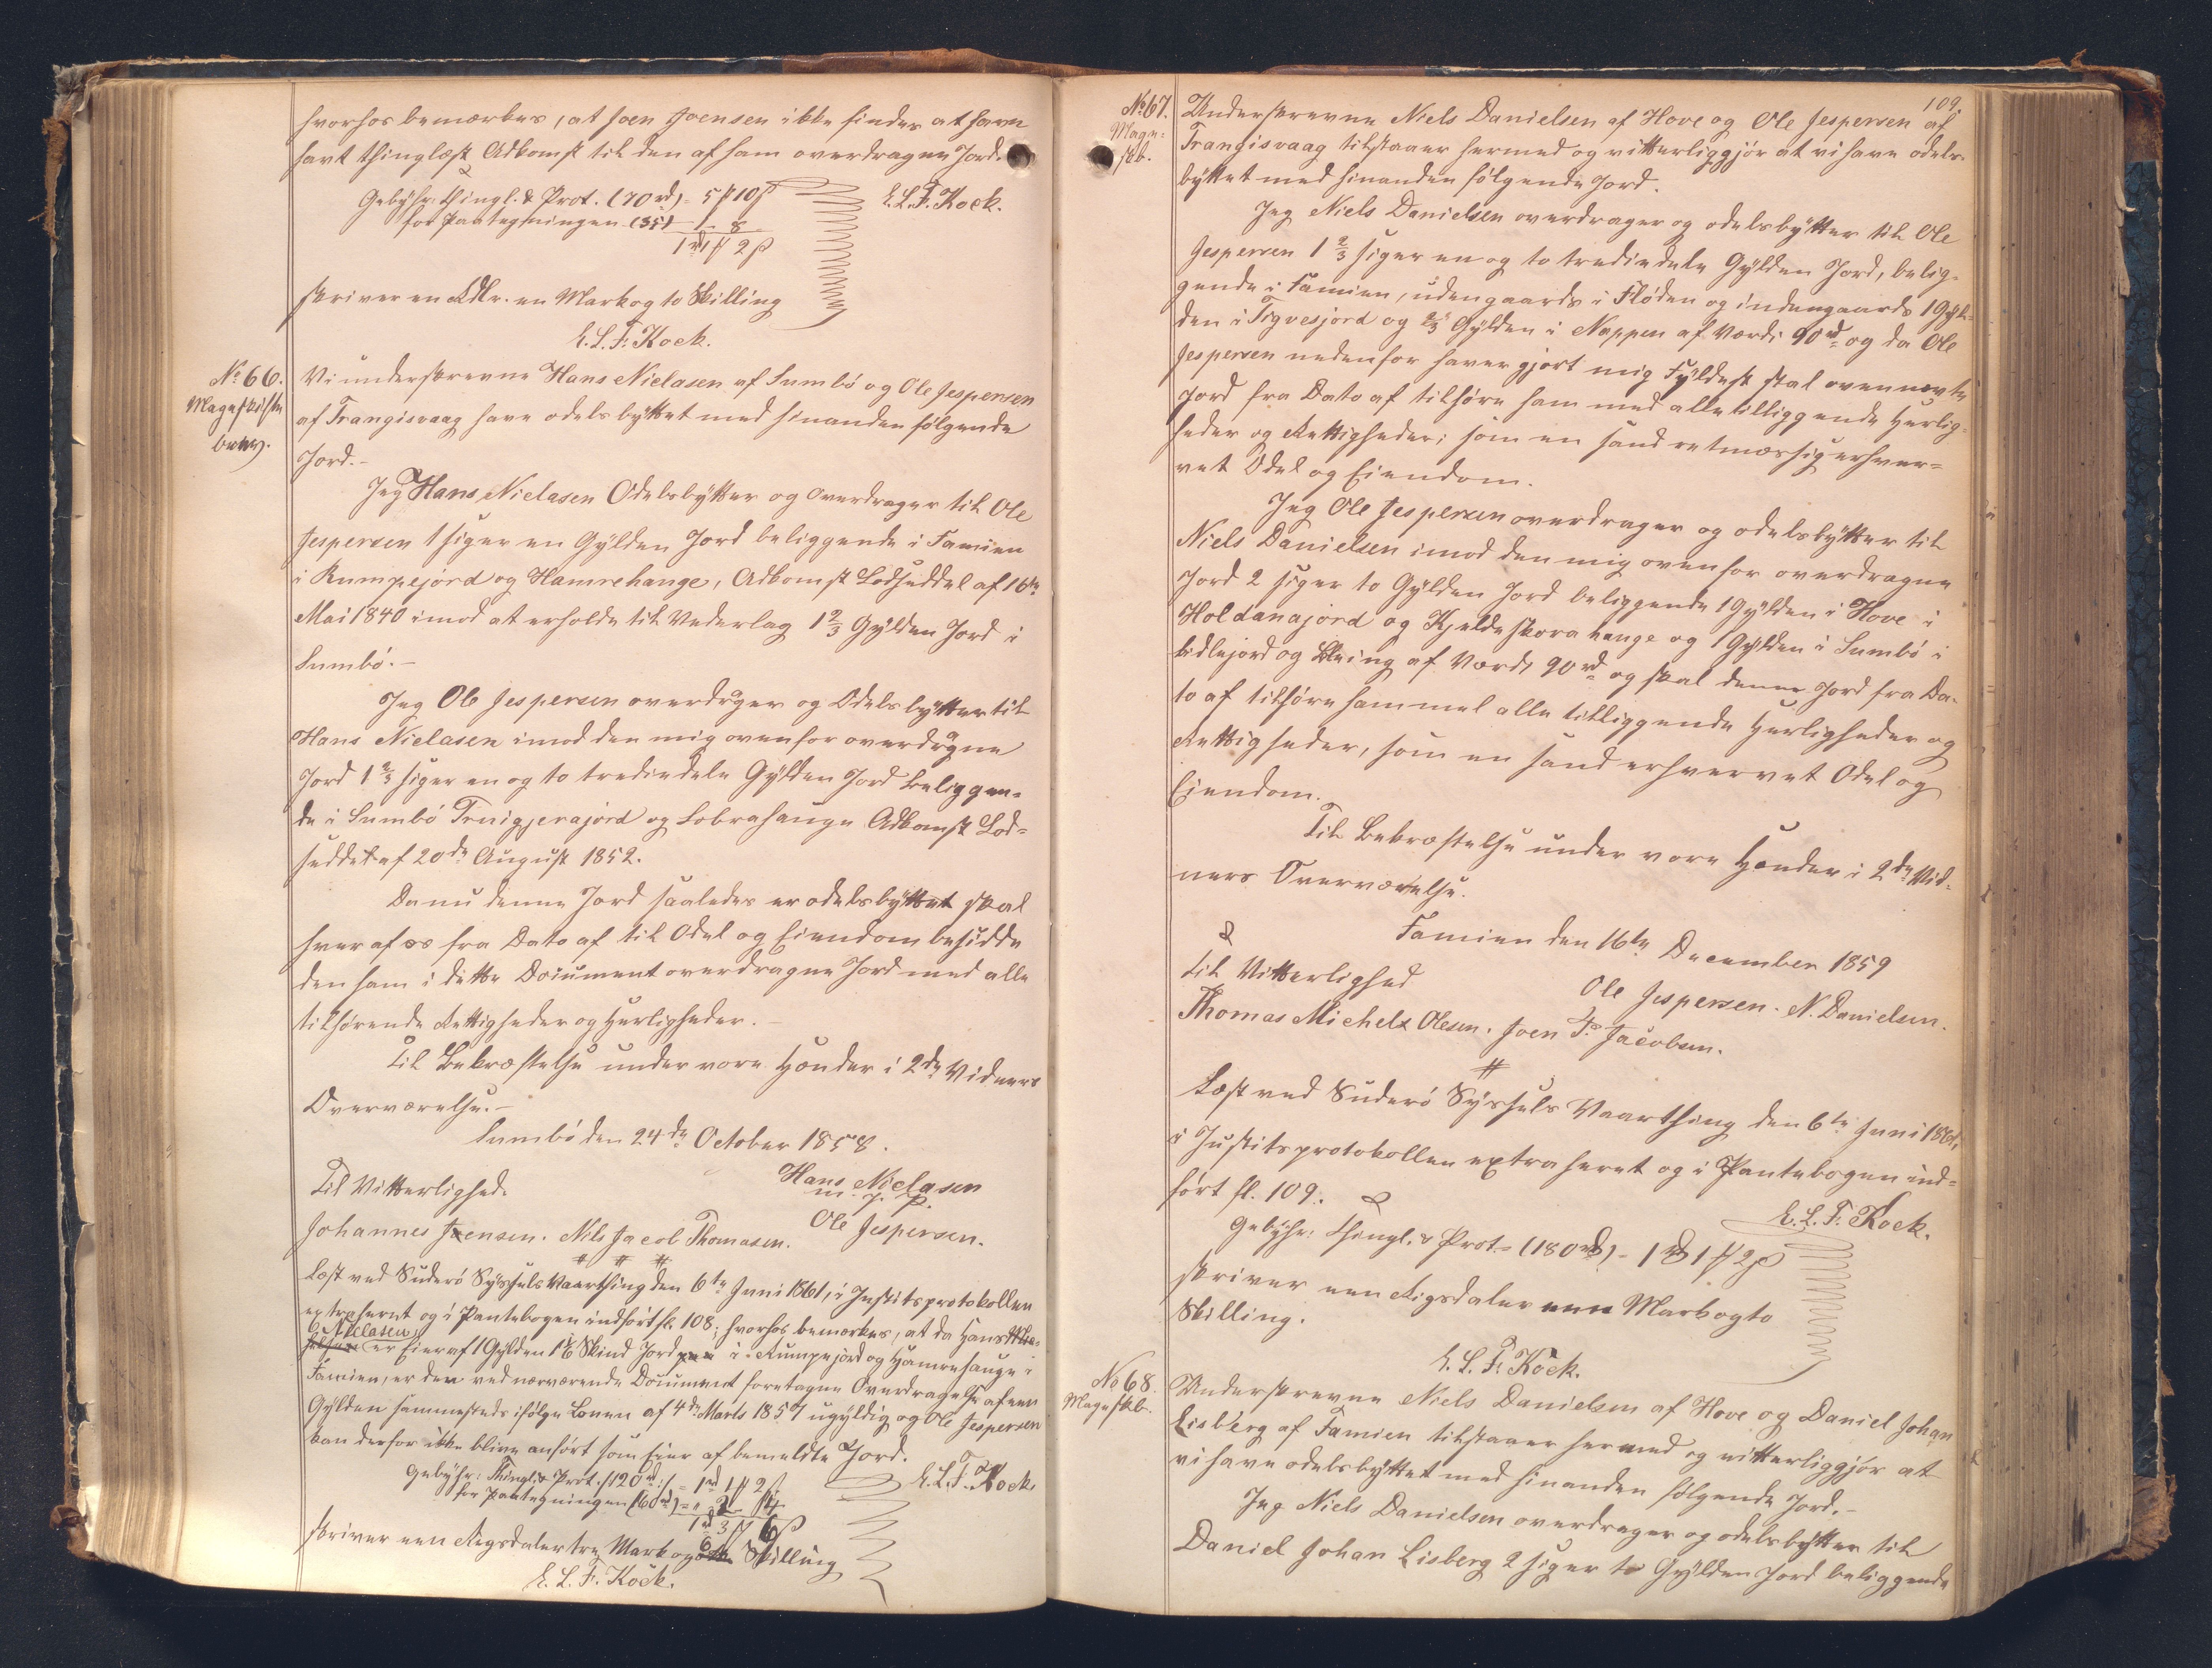 hvorhos bemærkes, at Joen Joensen ikke findes at have
havt thinglæst Adkomst til den af ham overdragne Jord.
Gebyhr: thingl. & Prot. (70 rd) = 5 ℳ 10 ß
E.L.F. Kock.
for Paategningen (35) 1 - 8
1 rd 1 ℳ 2 ß
skriver en Rdlr. en Mark og to Skilling
E.L.F. Kock.
No 66.
Mageskifte
brev.
Vi underskrevne Hans Nielasen af Sumbö og Ole Jespersen
af Trangisvaag have odelsbyttet med hinanden følgende
Jord.-
Jeg Hans Nielasen Odelsbytter og overdrager til Ole
Jespersen 1 siger en Gylden Jord beliggende i Famien
i Rumpejord og Hamrehauge, Adkomst Lodseddel af 16de
Mai 1840 imod at erholde til Vederlag 1 2/3 Gylden Jord i
Sumbö.-
Jeg Ole Jespersen overdrager og Odelsbytter til
Hans Nielasen imod den mig ovenfor overdragne
Jord 1 2/3 siger en og to trediedele Gylden Jord beliggen=
de i Sumbö Truigjerajord og Lobrahauge Adkomst Lod=
seddel af 20de August 1852.
Da nu denne Jord saaledes er odelsbyttet skal
hver af os fra Dato af til Odel og Eiendom besidde
den ham i dette Document overdragne Jord med alle
tilhørende Rettigheder og Herligheder.-
Til Bekræftelse under vore Hænder i 2de Vidners
Overværelse.-
Sumbö den 24de October 1858.
Til Vitterlighed.
Hans Nielasen
m. f. P.
Johannes Joensen. Nils Jacob Thomasen.
Ole Jespersen.
Læst ved Suderö Syssels Vaarthing den 6te Juni 1861, i Justitsprotokollen
extraheret og i Pantebogen indført fl. 108; hvorhos bemærkes, at da Hans
Nielasen er Eier af 1 Gylden 1 1/6 Skind Jord i Rumpejord og Hamrehauge i
Famien, er den ved nærværende Document foretagne Overdragelse af een
Gylden sammesteds ifølge Loven af 4de Marts 1857 ugyldig og Ole Jespersen
kan derfor ikke blive anført som Eier af bemeldte Jord.
Gebyhr: Thingl. & Prot. (120 rd) = 1 rd 1 ℳ 2 ß
E.L.F. Kock.
for Paategningen (60 rd) = " 2 4
1 rd 3 ℳ 6 ß
skriver een Rigsdaler tre Mark og 6 Skilling
E.L.F. Kock.
109.
No 67.
Mage=
skb.
Underskrevne Niels Danielsen af Hove og Ole Jespersen af
Trangisvaag tilstaaer hermed og vitterliggjør at vi have odels=
byttet med hinanden følgende Jord.
Jeg Niels Danielsen overdrager og odelsbytter til Ole
Jespersen 1 2/3 siger en og to trediedele Gylden Jord, belig=
gende i Famien, udengaards i Fløden og indengaards 1 Gyl=
den i Tigvesjord og 2/3 Gylden i Nappen af Værdi 90 rd og da Ole
Jespersen nedenfor haver gjort mig Fyldest skal ovennævnte
Jord fra Dato af tilhøre ham med alle tilliggende Herlig=
heder og Rettigheder; som en sand retmæssig erhver=
vet Odel og Eiendom.
Jeg Ole Jespersen overdrager og odelsbytter til
Niels Danielsen imod den mig ovenfor overdragne
Jord 2 siger to Gylden Jord beliggende 1 Gylden i Hove i
Holdanajord og Kjeldeskora hauge og 1 Gylden i Sumbö i
Lidlejord og af Værdi 90 rd og skal denne Jord fra Da=
to af tilhøre ham med alle tilliggende Herligheder og
Rettigheder, som en sand erhvervet Odel og
Eiendom.
Til Bekræftelse under vore Hænder i 2de Vid=
ners Overværelse.
Famien den 16te December 1859
Til Vitterlighed
Ole Jespersen. N. Danielsen.
Thomas Michels Olesen. Joen Ps Jacobsen.
Læst ved Suderö Syssels Vaarthing den 6te Juni 1861,
i Justitsprotokollen extraheret og i Pantebogen ind=
ført fl. 109.
E.L.F. Kock.
Gebyhr: Thingl. & Prot. (180 rd) = 1 rd 1 ℳ 2 ß
skriver een Rigsdaler een Mark og to
Skilling.
E.L.F. Kock.
No 68.
Mageskb.
Underskrevne Niels Danielsen af Hove og Daniel Johan
Lisberg af Famien tilstaaer hermed og vitterliggjør at
vi have odelsbyttet med hinanden følgende Jord.-
Jeg Niels Danielsen overdrager og odelsbytter til
Daniel Johan Lisberg 2 siger to Gylden Jord beliggende